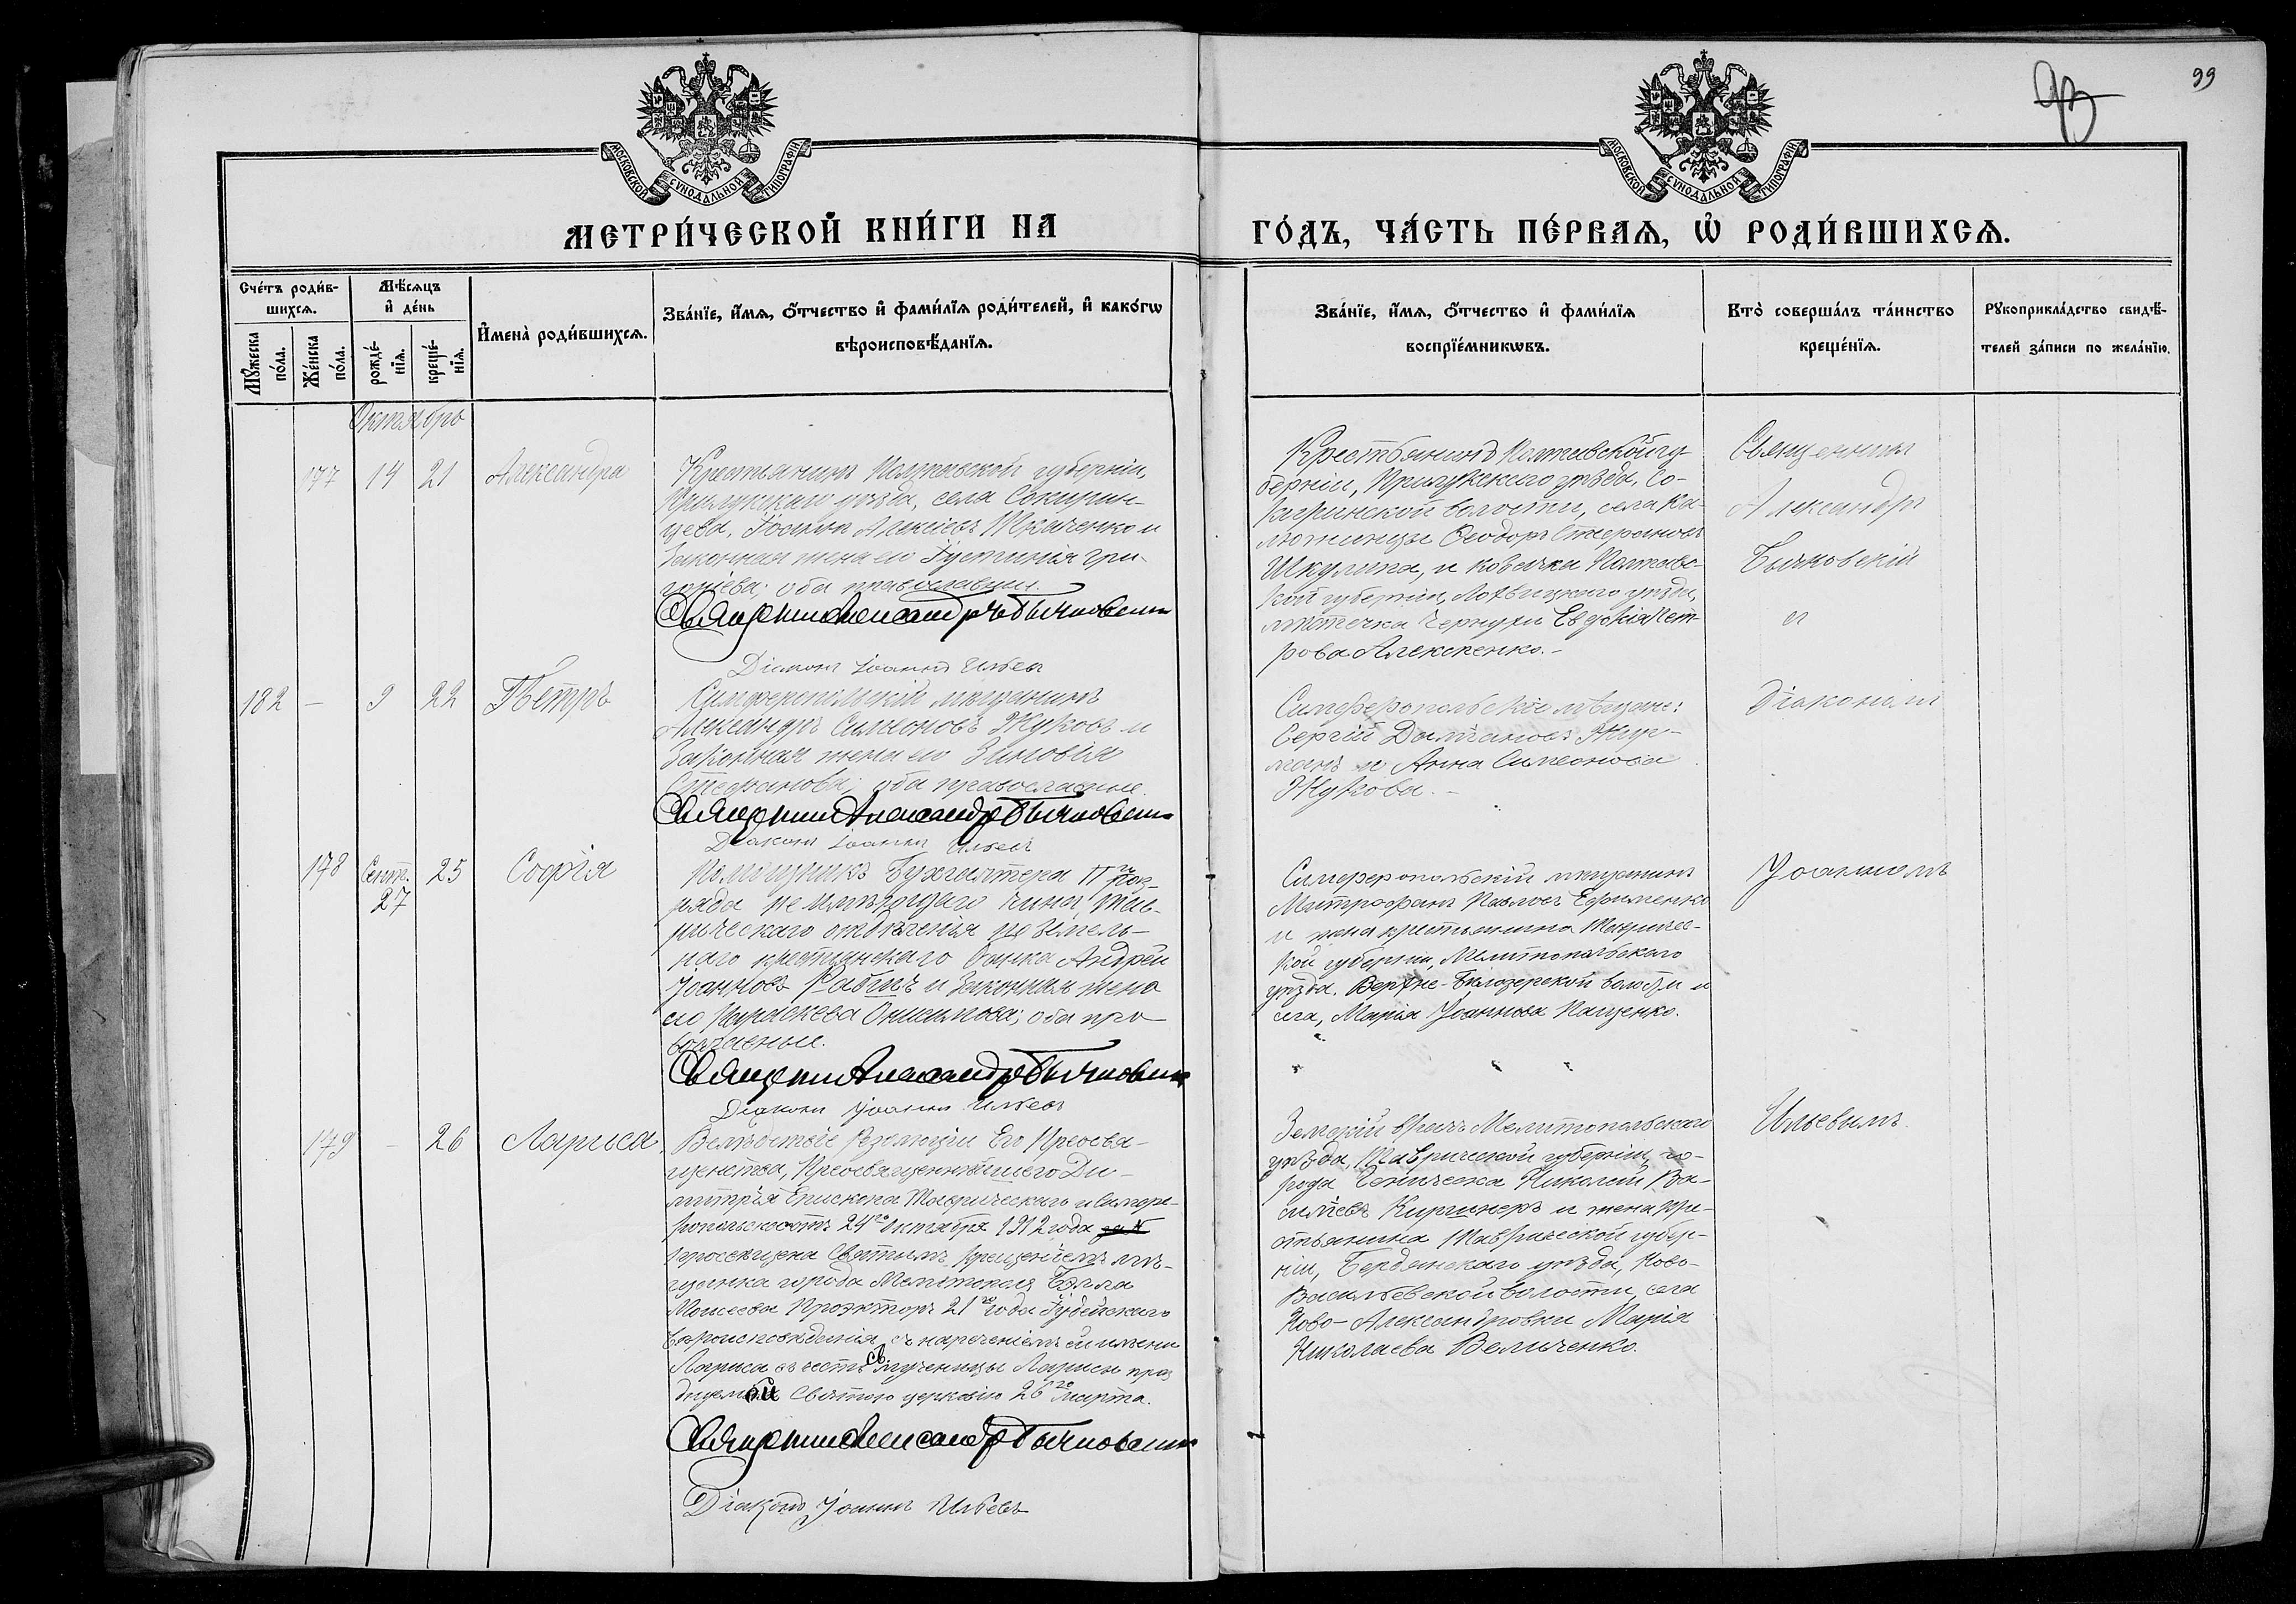 99
93
МОСКОВСКОЙ СѴНОДАЛЬНОЙ ТИПОГРАФІИ
МОСКОВСКОЙ СѴНОДАЛЬНОЙ ТИПОГРАФІИ
МЕТРИ́ЧЕСКОЙ КНИ́ГИ НА
ГО́ДЪ, ЧА́СТЬ ПЕ́РВАѦ, Ѡ҆ РОДИ́ВШИХСѦ.
Сче́тъ роди́в-
шихсѧ.
Мꙋ́жеска по́ла.
Же́нска по́ла.
Мѣ́сѧцъ
и҆ де́нь
рожде́-
нїѧ.
креще́-
нїѧ.
И҆мена̀ роди́вшихсѧ.
Зва́нїе, и҆́мѧ, ѻ҆́тчество и҆ фами́лїѧ роди́телей, и҆ како́гѡ
вѣроисповѣ́данїѧ.
Зва́нїе, и҆́мѧ, ѻ҆́тчество и҆ фами́лїѧ
воспрїе́мникѡвъ.
Кто̀ соверша́лъ та́инство
креще́нїѧ.
Рꙋкоприкла́дство свидѣ́-
телей за́писи по жела́нїю.
Октябрь
177 14 21 Александра
Крестьянинъ Полтавской губерніи,
Прилукскаго уѣзда, села Сокирин-
цева, Іосифъ Алексіевъ Ткаченко и
Законная жена его Іустинія Гри-
горіева; оба православные.
Священникъ Александръ Бычковскій
Діаконъ Іоаннъ Ильевъ
Крестьянинъ Полтавской гу-
берніи, Прилукскаго уѣзда, Со-
киринской волости, села Ка-
Ѳеодоръ Стефановъ
Шкулипа, и козачка Полтавс-
кой губерніи, Лохвицкаго уѣзда,
мѣстечка Чернухи Евдокія Пет-
рова Алексеенко.-
Священникъ
Александръ
Бычковскій
и
182 - 9 22 Петръ
Симферопольскій мѣщанинъ
Александръ Симеоновъ Жуковъ и
Законная жена его Зиновія
Стефанова; оба православные.
Священникъ Александръ Бычковскій
Діаконъ Іоаннъ Ильевъ
Симферопольскіе мѣщане:
Сергій Даміановъ
и Анна Симеонова
Жукова.-
Діакономъ
178 Сент. 27 25 Софія
Помощникъ Бухгалтера II го раз-
ряда не имѣющаго чина, Тав-
рическаго отдѣленія поземель-
наго крестьянскаго банка Андрей
Іоанновъ Рабинъ и Законная жена
его Параскева Онисимова; оба пра-
вославные.
Священникъ Александръ Бычковскій
Діаконъ Іоаннъ Ильевъ
Симферопольскій мѣщанинъ
Митрофанъ Павловъ Ефименко
и жена крестьянина Тавричес-
кой губерніи, Мелитопольскаго
уѣзда, Верхне-Бѣлозерской волости и
села, Марія Іоаннова Пащенко.
Іоанномъ
179 - 26 Лариса
Вслѣдствіе Резолюціи Его Преосвя-
щенства, Преосвященнѣйшаго Ди-
митрія Епископа Таврическаго и Симфе-
ропольскаго отъ 24го октября 1912 года за №
просвѣщена Святымъ Крещеніемъ мѣ-
щанка города Мелитополя Бэлла
Моисеева Проэкторъ 21го года Іудейскаго
вѣроисповѣданія, съ нареченіемъ ей имени
Лариса въ честь Св. мученицы Ларисы праз
днуемой Святою церковію 26го марта.
Священникъ Александръ Бычковскій
Діаконъ Іоаннъ Ильевъ
Земскій врачъ Мелитопольскаго
уѣзда, Таврической губерніи, го-
рода Геническа Николай Ва-
силіевъ Киршнеръ и жена кре-
стьянина Таврической губер-
ніи, Бердянскаго уѣзда, Ново-
Васильевской волости, села
Ново-Александровки Марія
Николаева Величенко.
Ильевымъ.